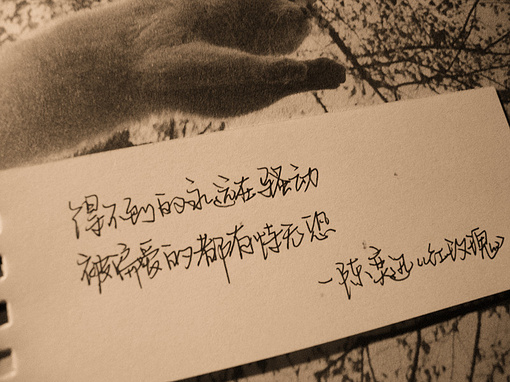 得不到的永远在骚动
被偏爱的都有恃无恐
－陈奕迅《红玫瑰》